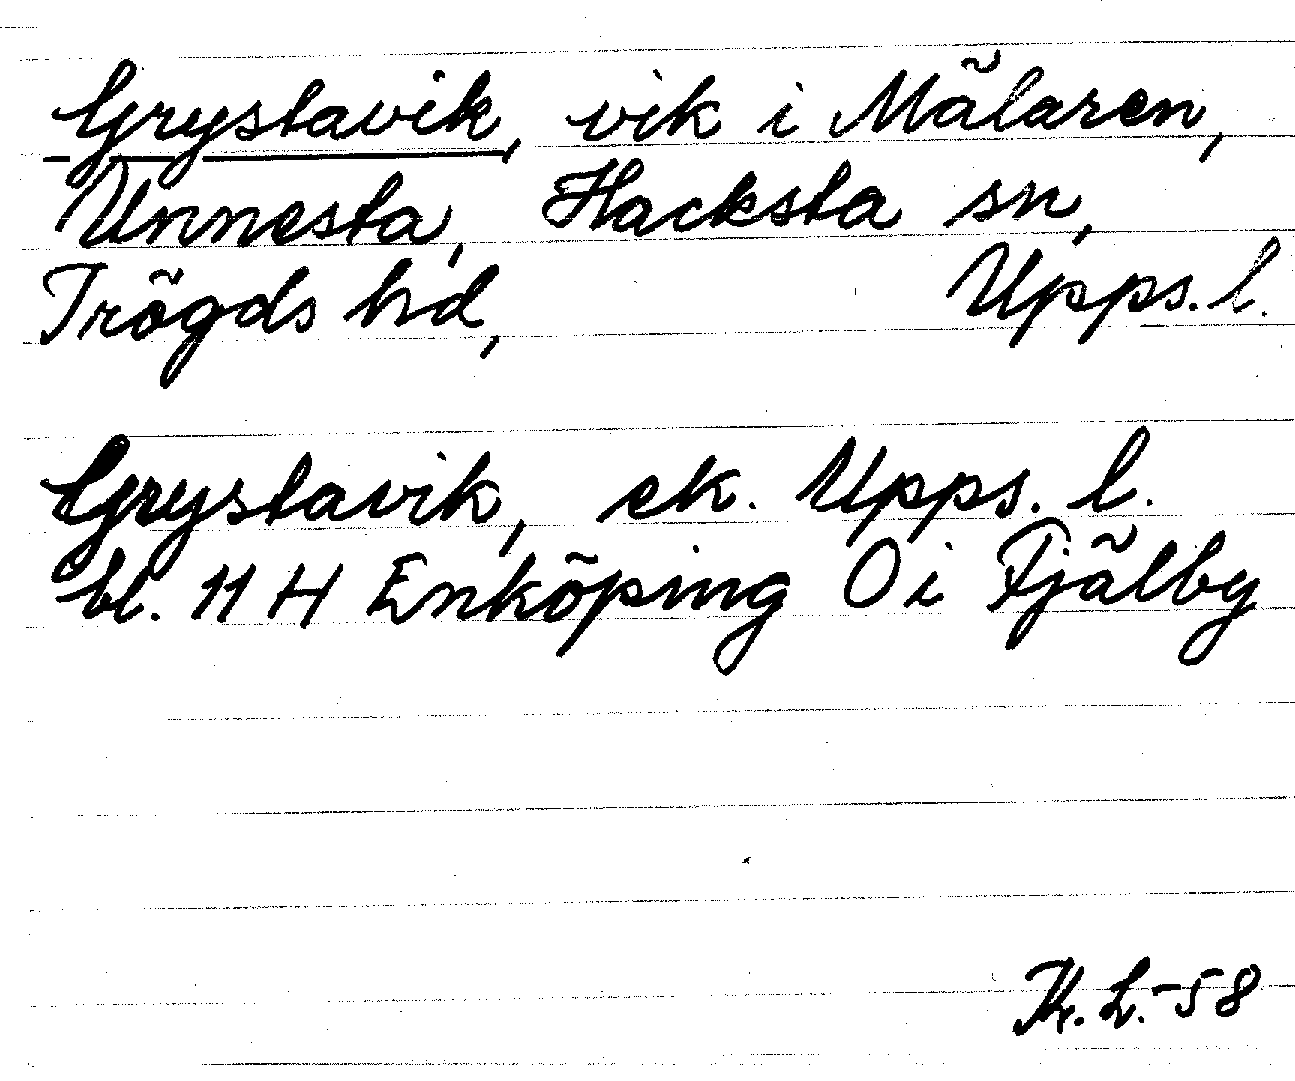 Grystavik, vik i Mälaren,
Unnesta, Hacksta sn,
Trögds hd, Upps. l.
Grystavik, ek. Upps. l.
bl. 11 H Enköping O i Fjälby
K. L. -58